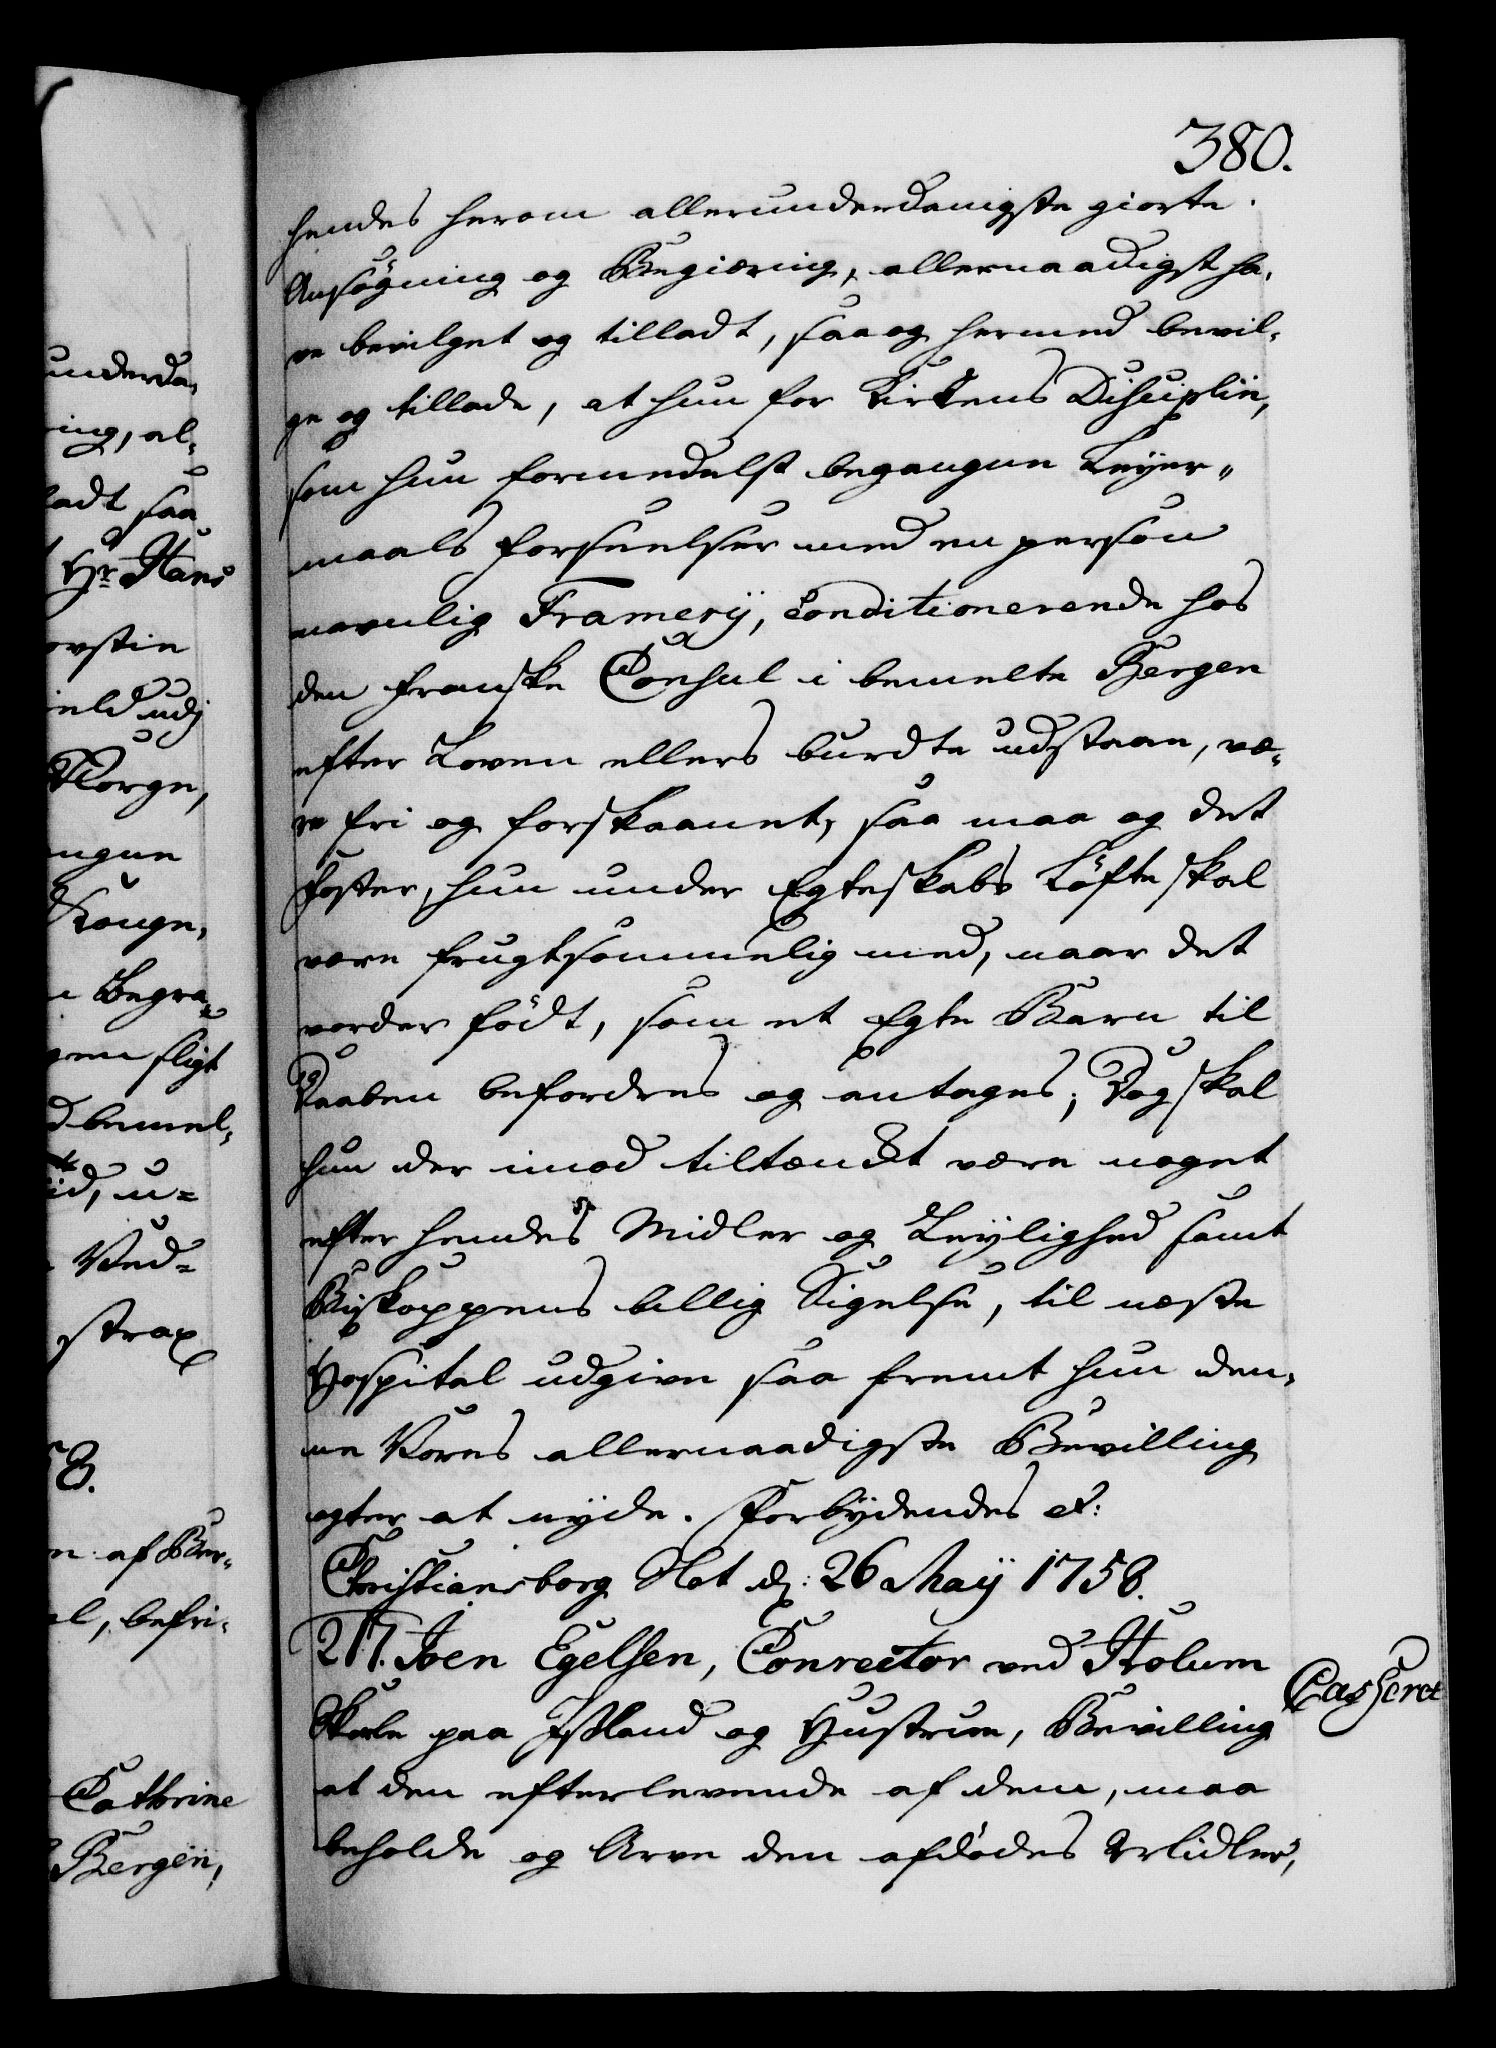 380.
hendes herom allerunderdanigste giorte
Ansøgning og Begiæring, allernaadigst ha-
ve bevilget og tilladt, saa og hermed bevil-
ge og tillade, at hun for Kirkens Disciplin,
som hun formedelst begangne Leyer-
maals forseelser med en person
navnlig Framerÿ, Conditionerende hos
den franske Consul i bemelte Bergen
efter Loven ellers burdte udstaae, væ-
re fri og forskaanet, saa maa og det
Foster, hun under Egteskabs Løfte skal
være frugtsommelig med, naar det
vorder født, som et Egte Barn til
Daaben befordres og antages; Dog skal
hun der imod tiltænckt være noget
efter hendes Midler og Leylighed samt
Biskoppens billig Sigelse, til næste
Hospital udgive saa fremt hun den-
ne Vores allernaadigste Bevilling
agter at nyde. Forbydendes etc:
Christiansborg Slot d: 26 Maÿ 1758.
217. Joen Egelsen, Conrector ved Holum
Skole paa Island og Hustrue, Bevilling
at den efterlevende af dem, maa
beholde og Arve den afdødes Midler,
Casseret
underda-
ing, al-
ladt saa
Hr Hans
ield udj
Norge,
ngne
Konge,
Begra-
gen sligt
d bemel-
id, u-
Ved-
strax
58.
n af Ber-
el, befri-
Cathrine
Bergen,